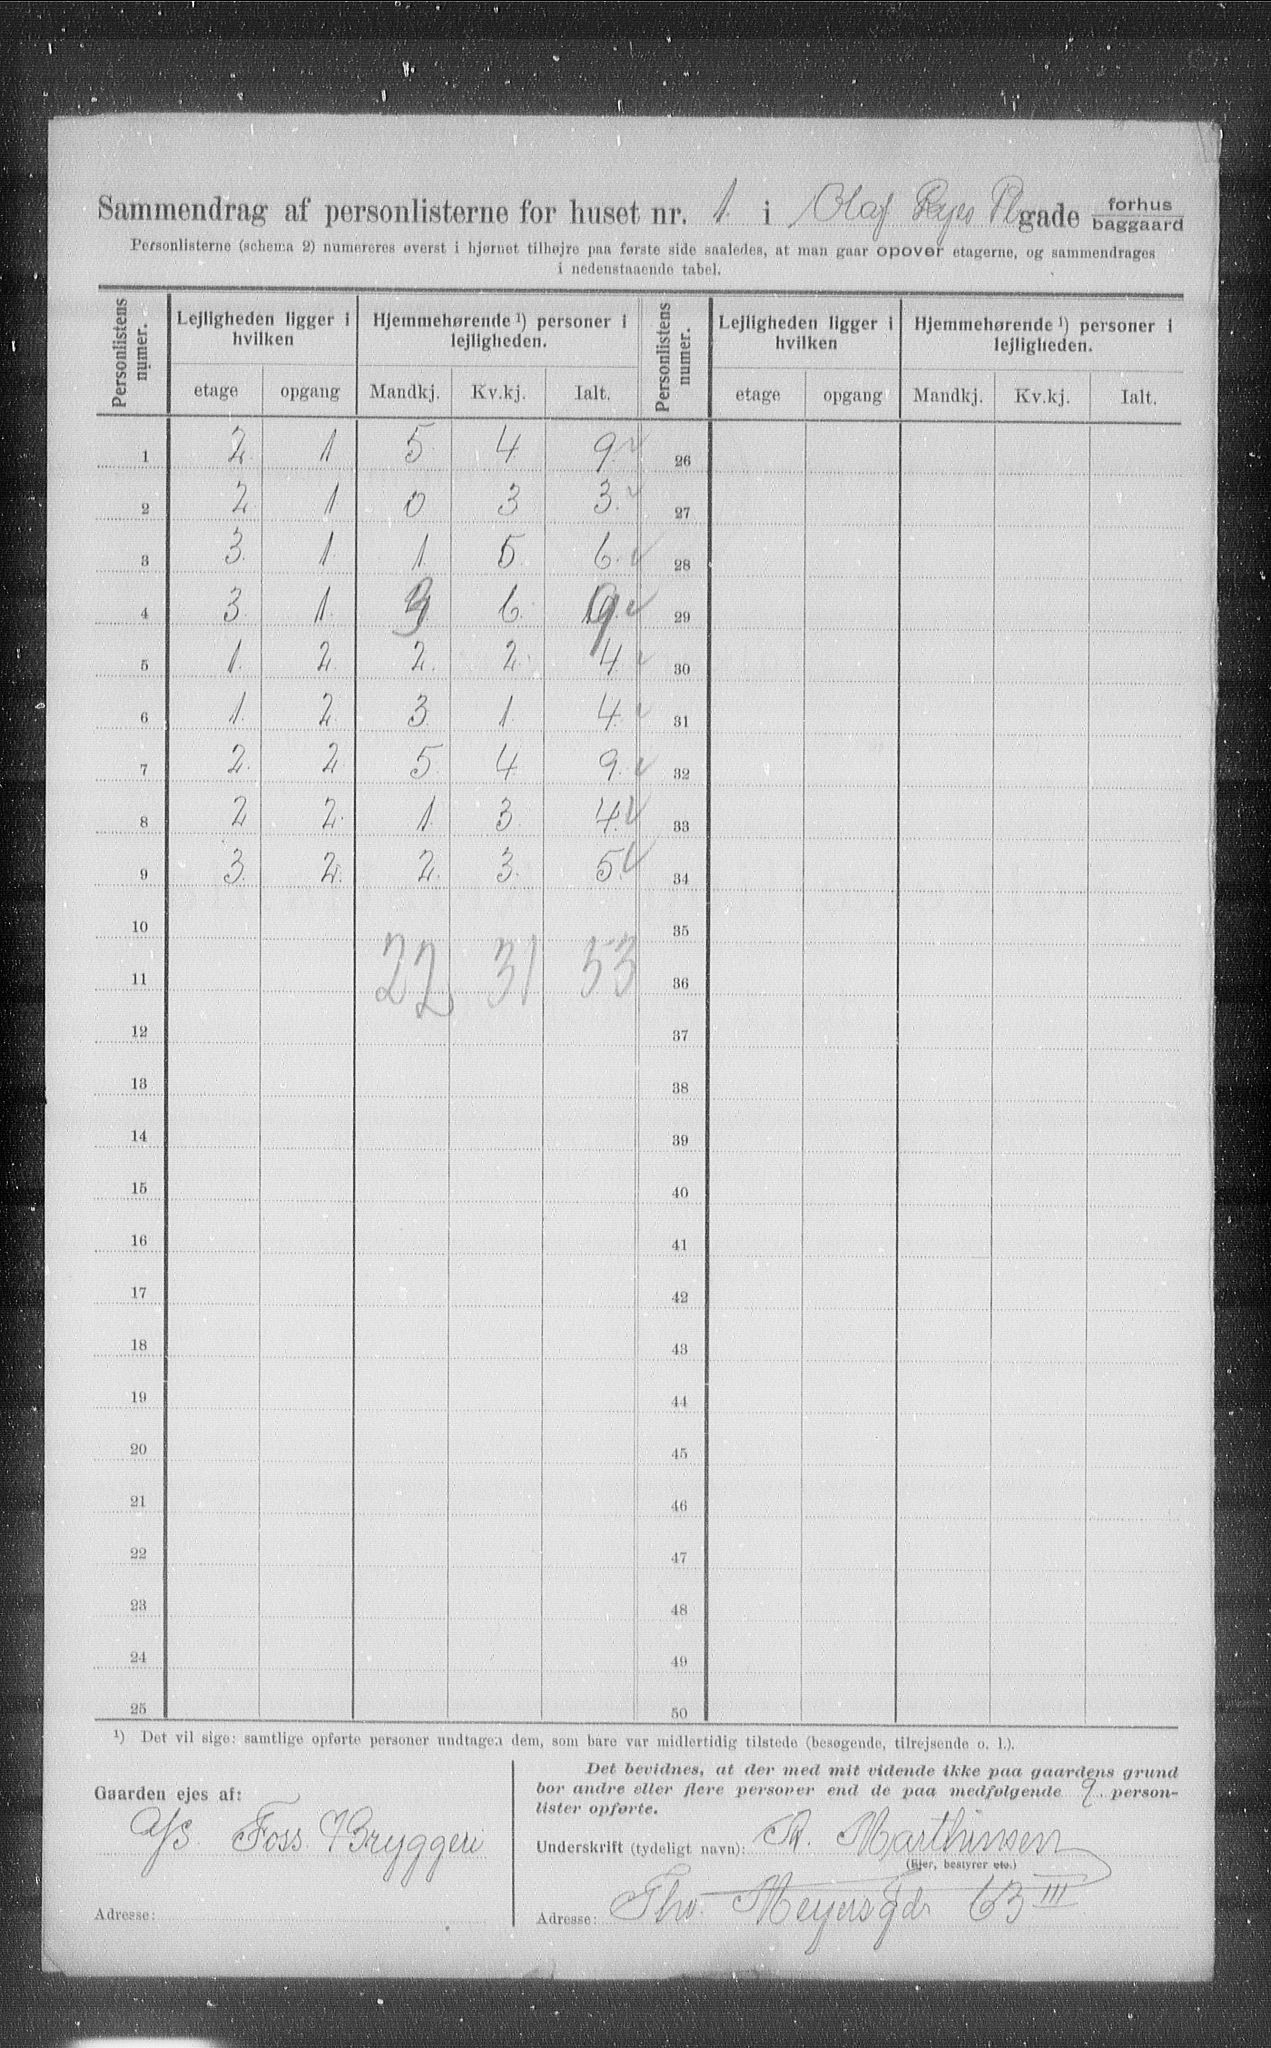 Sammendrag af personlisterne for huset nr. 1. i Olaf Ryes Pl gade forhus baggaard
Personlisterne (schema 2) numereres øverst i hjørnet tilhøjre paa første side saaledes, at man gaar opover etagerne, og sammendrages
i nedenstaaende tabel.
Personlistens numer. Lejligheden ligger i hvilken Hjemmehørende ¹) personer i lejligheden. Personlistens numer. Lejligheden ligger i hvilken Hjemmehørende ¹) personer i lejligheden.
etage opgang Mandkj. Kv.kj. Ialt. etage opgang Mandkj. Kv.kj. Ialt.
1 2. 1 5 4 9. 26
2 2 1 0 3 3. 27
3 3. 1 1. 5 6. 28
4 3. 1. 3 6. 9 29
5 1. 2. 2. 2. 4. 30
6 1. 2. 3 1. 4. 31
7 2. 2 5. 4 9. 32
8 2 2. 1. 3. 4. 33
9 3. 2. 2. 3. 5. 34
10 35
11 22 31 53 36
12 37
13 38
14 39
15 40
16 41
17 42
18 43
19 44
20 45
21 46
22 47
23 48
24 49
25 50
¹) Det vil sige: samtlige opførte personer undtagen dem, som bare var midlertidig tilstede (besøgende, tilrejsende o. l.).
Gaarden ejes af:
A/S. Foss Bryggeri
Adresse:
Det bevidnes, at der med mit vidende ikke paa gaardens grund
bor andre eller flere personer end de paa medfølgende 9 person-
lister opførte.
Underskrift (tydeligt navn): A. Marthinsen
(Ejer, bestyrer etc.)
Adresse: Thv. Meyersgd. 63 III